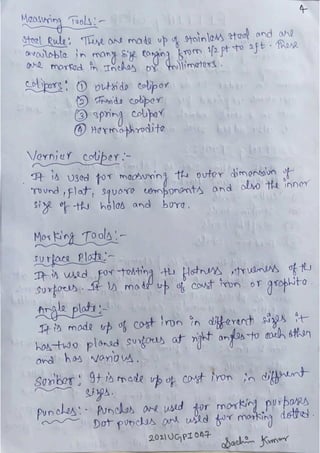 4
Measuring Tools:-
Steel Rule: These are made up of stainless steel and are
available in many size ranging from 1/2 ft to 2ft. These
are marked in Inches or millimeters.
Calipers: ① outside caliper
② Inside caliper
③ spring caliper
④ Hermaphrodite
Vernier caliper:-
It is used for measuring the outer dimension of
round, flat, square components and also the inner
size of the holes and bore.
Marking Tools:-
Surface Plate:-
It is used for testing the flatness, trueness of the
surfaces. It is made up of cast iron or graphite
Angle plate:-
It is made up of cast iron in different sizes it
has two planed surfaces at right angles to each other
and has various.
Scriber: It is made up of cast iron in different
sizes.
Punches:- Punches are used for marking purposes
Dot punches are used for marking dotted.
2021UGPI007
Sachin Kumar